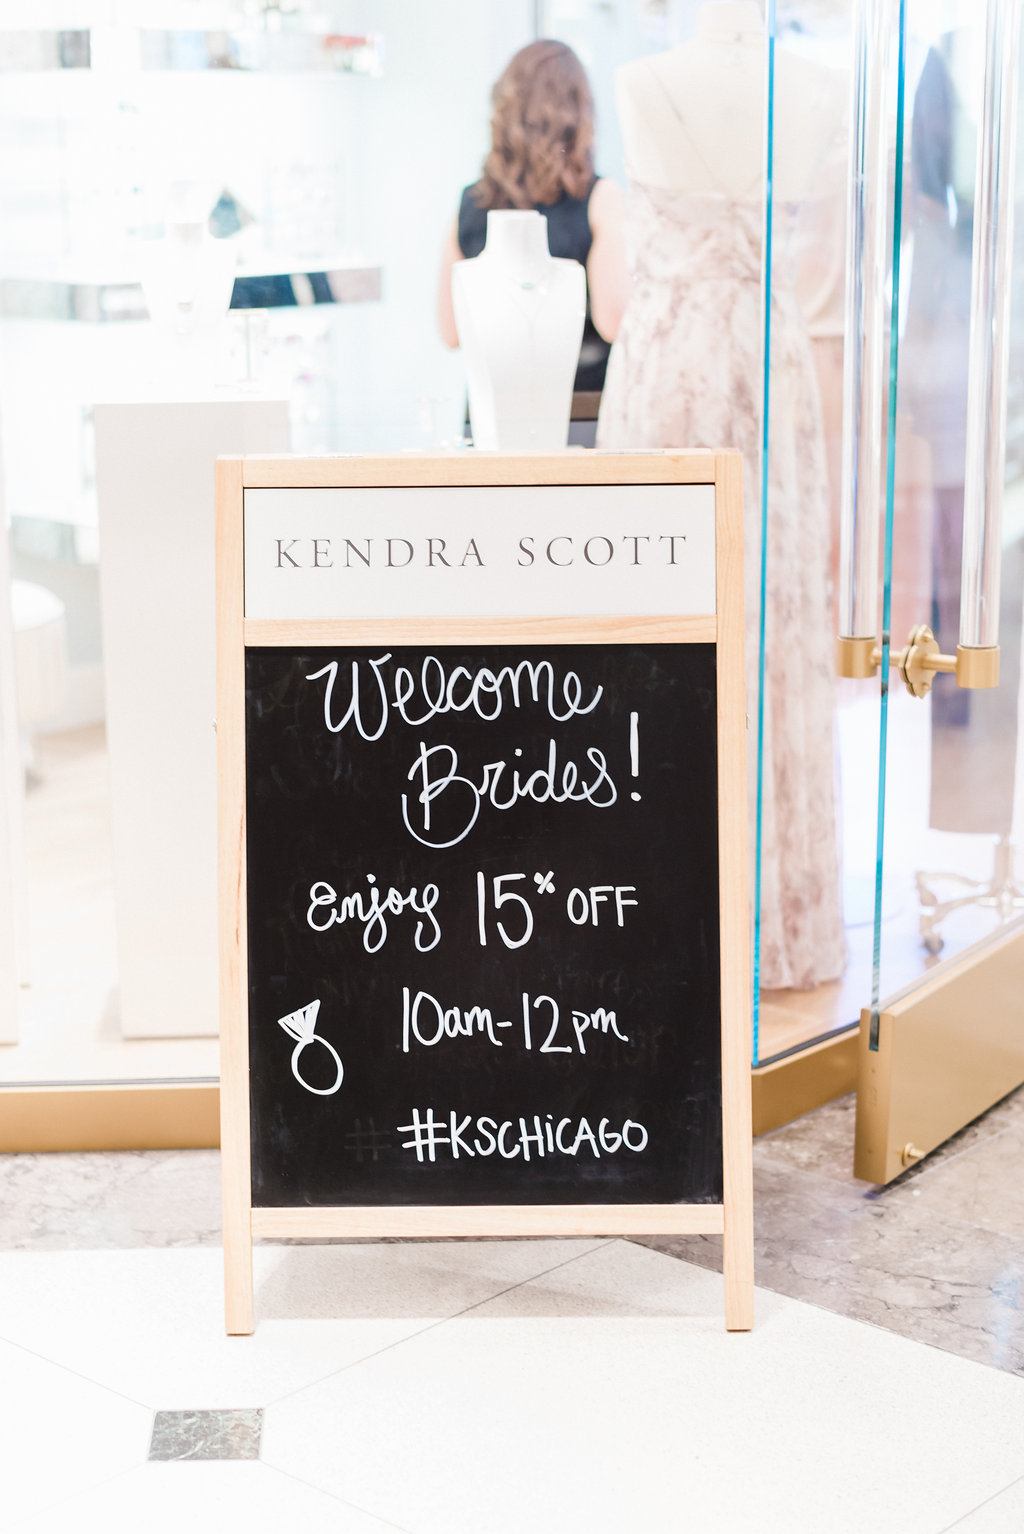 KENDRA SCOTT
Welcome
Brides!
Enjoy 15% OFF
10am-12pm
#KSCHiCAGO